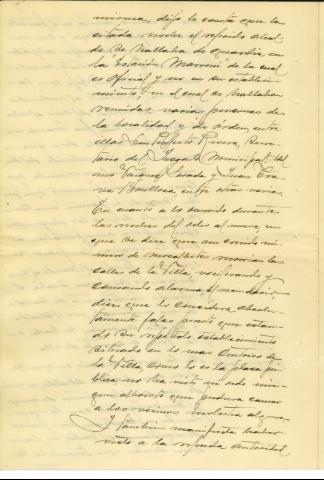 misma, dijo le consta que la
citada noche el referido
se hallaba de guardia en
la Estación Marconi de la cual
es oficial y no en su estableci-
miento, en el cual se hallaban
reunidas varias personas de
la localidad y de órden, entre
ellas Don Roberto Rivera, Secre-
tario del Juzgado Municipal,
Vazquez y Juan
entre otras varias.
En cuanto a lo ocurrido durante
las noches del ocho al nueve, en
que se dice que un considerable nú-
mero de recorrian las
calles de la Villa, vociferando y
causando alarma al vecindario,
dice que lo considera absolu-
tamente falso puesto que estan-
do su repetido establecimiento
situado en lo mas centrico de
la Villa como lo es la plaza pú-
blica, no ha visto ni oido nin-
gun alboroto que pudiera causar
a los vecinos molestia alguna.
Y tambien manifiesta haber
visto a la referida autoridad